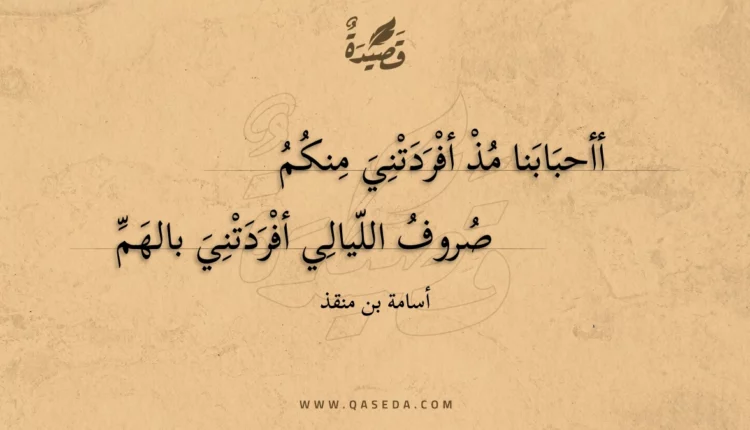 قَصِيْدَةٌ
أأحبَابَنا مُذْ أفْرَدَتْنِيَ مِنكُمُ
صُروفُ اللّيالِي أفْرَدَتْنِيَ بالهَمِّ
أسامة بن منقذ
WWW.QASEDA.COM